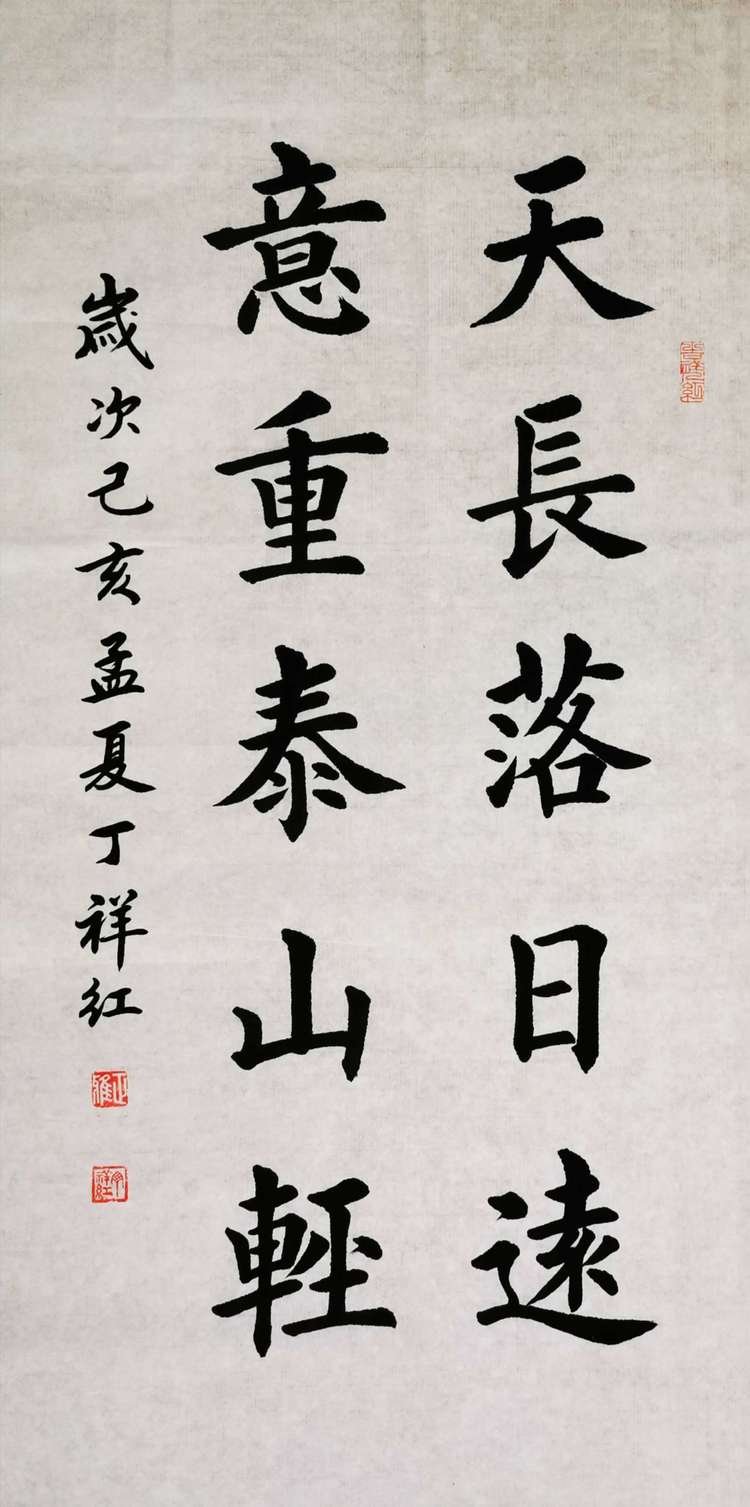 天長落日遠
意重泰山輕
歲次己亥孟夏丁祥红